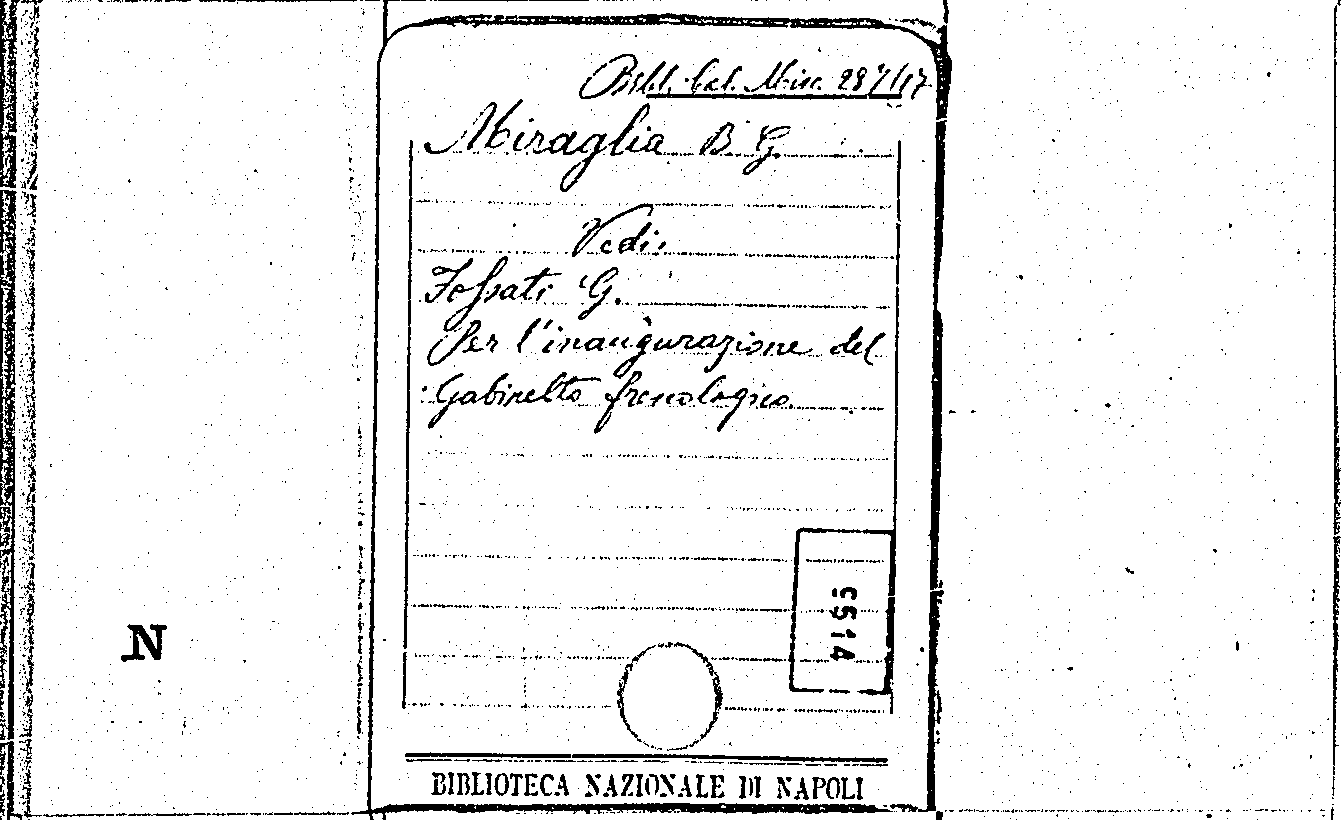 Bibl. Cal. Misc. 287/17
Miraglia B. G.
Vedi.
Fossati G.
Per l'inaugurazione del
Gabinetto frenologico.
5514
N
BIBLIOTECA NAZIONALE DI NAPOLI